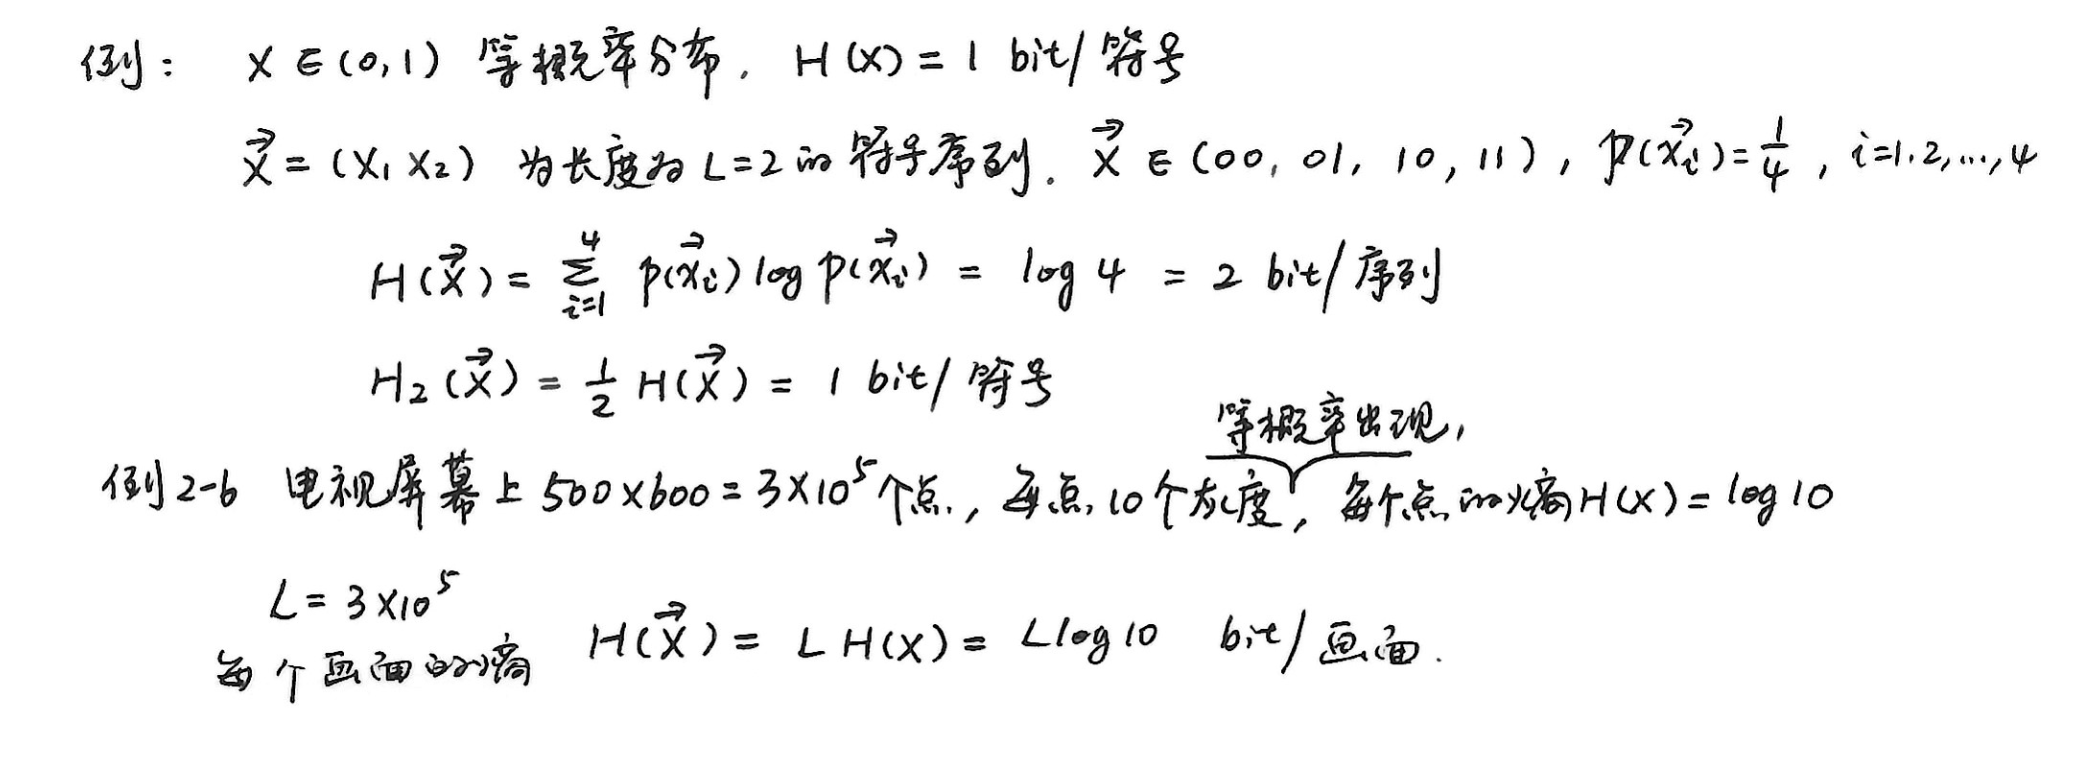 例： X ∈ (0,1) 等概率分布. H(X) = 1 bit/符号
X⃗ = (X₁ X₂) 为长度为 L=2 的符号序列. X⃗ ∈ (00, 01, 10, 11), p(x⃗ᵢ)=1/4, i=1.2,...,4
H(X⃗) = ∑ᵢ₌₁⁴ p(x⃗ᵢ) log p(x⃗ᵢ) = log 4 = 2 bit/序列
H₂(X⃗) = 1/2 H(X⃗) = 1 bit/符号
等概率出现,
例2-6 电视屏幕上 500×600 = 3×10⁵个点, 每点10个灰度, 每个点的熵 H(X) = log 10
L = 3×10⁵
每个画面的熵 H(X⃗) = L H(X) = L log 10 bit/画面.